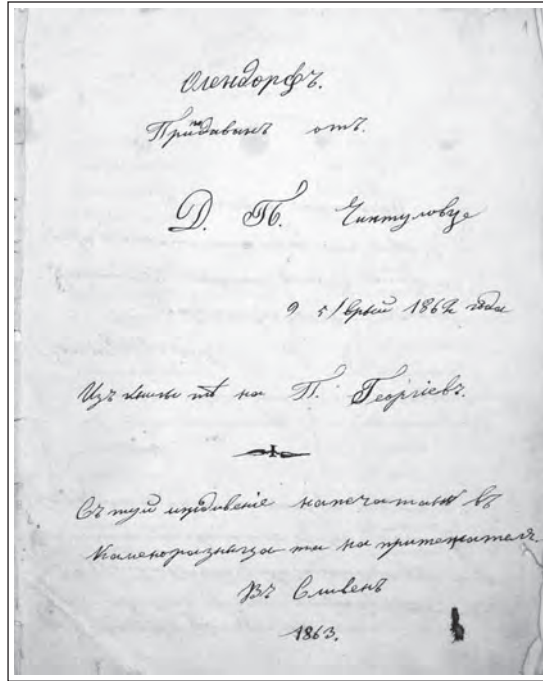 Олендорфъ.
Прѣдаванъ отъ.
Д. П. Чинтуловъ
9 1862 года
Изъ книгы тѣ на П. Георгіевъ.
Съ туй издавеніе напечатанъ въ
Каменоразница та на притежателъ.
Въ Сливенъ
1863.